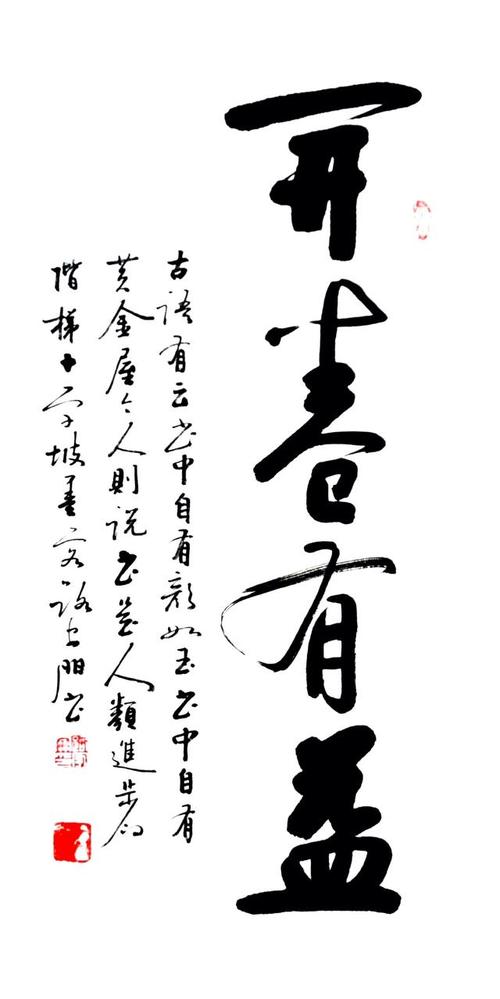 开卷有益
古语有云书中自有颜如玉书中自有
黄金屋今人則说书是人類進步的
階梯十字坡墨客路士朋书